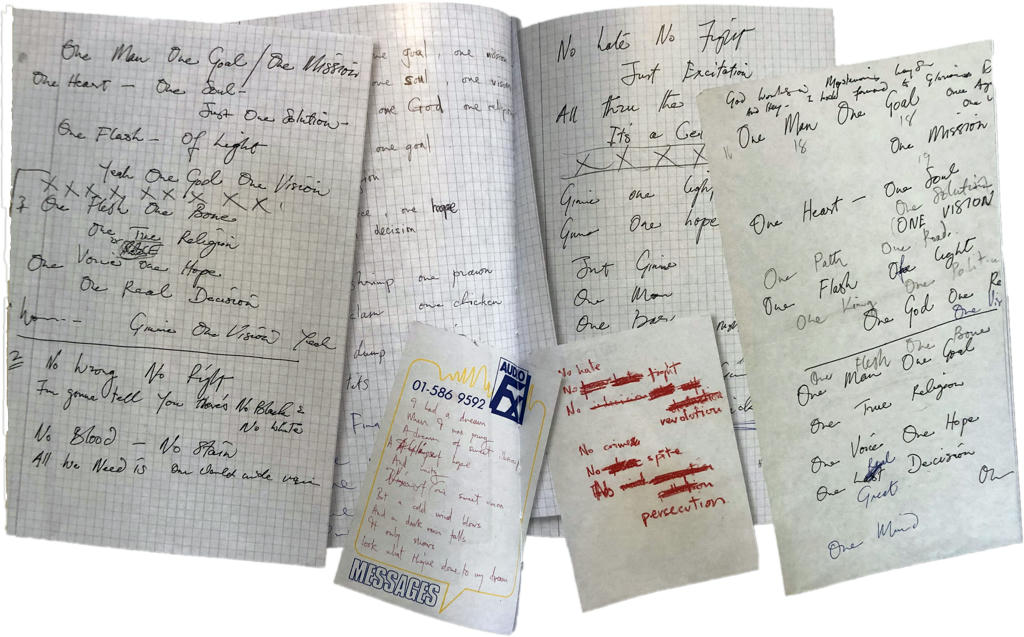 One Man One Goal / One Mission
One Heart - One Soul -
Just One Solution -
One Flash - Of Light
Yeah One God One Vision
X X X X X X X X X
One Flesh One Bone
One True Religion
One Voice One Hope
One Real Decision
Gimme One Vision Yeah
2
No Wrong No Right
I'm gonna tell you there's No Black &
No White
No Blood - No Stain
All We Need is One World wide vision
one goal, one mission
one soul, one vision
one God one religion
one goal
one hope
decision
shrimp one prawn
clam one chicken
dump
No hate No Fight
Just Excitation
All thru the
It's a Ce
X X X X
Gimme one light
Gimme One hope
Just Gimme
One Man
One Bar
God works in Mysterious Ways
One Man One Goal
18
18
One Mission
19
One Heart - One Soul
One Solution
(ONE VISION
One Path One Road.
One Flash Of Light
One King One
One God One Re
One Vis
One Flesh One Bone
One Man One Goal
One True Religion
One Voice One Hope
One Decision
Great
One Mind
AUDIO
FX
01-586 9592
I had a dream
When I was young
A dream of sweet
hope
And
one sweet union
But a cold wind blows
And a dark rain falls
It only shows
Look what they've done to my dream
MESSAGES
No hate
No fight
No
revolution
No crime
No spite
No
persecution